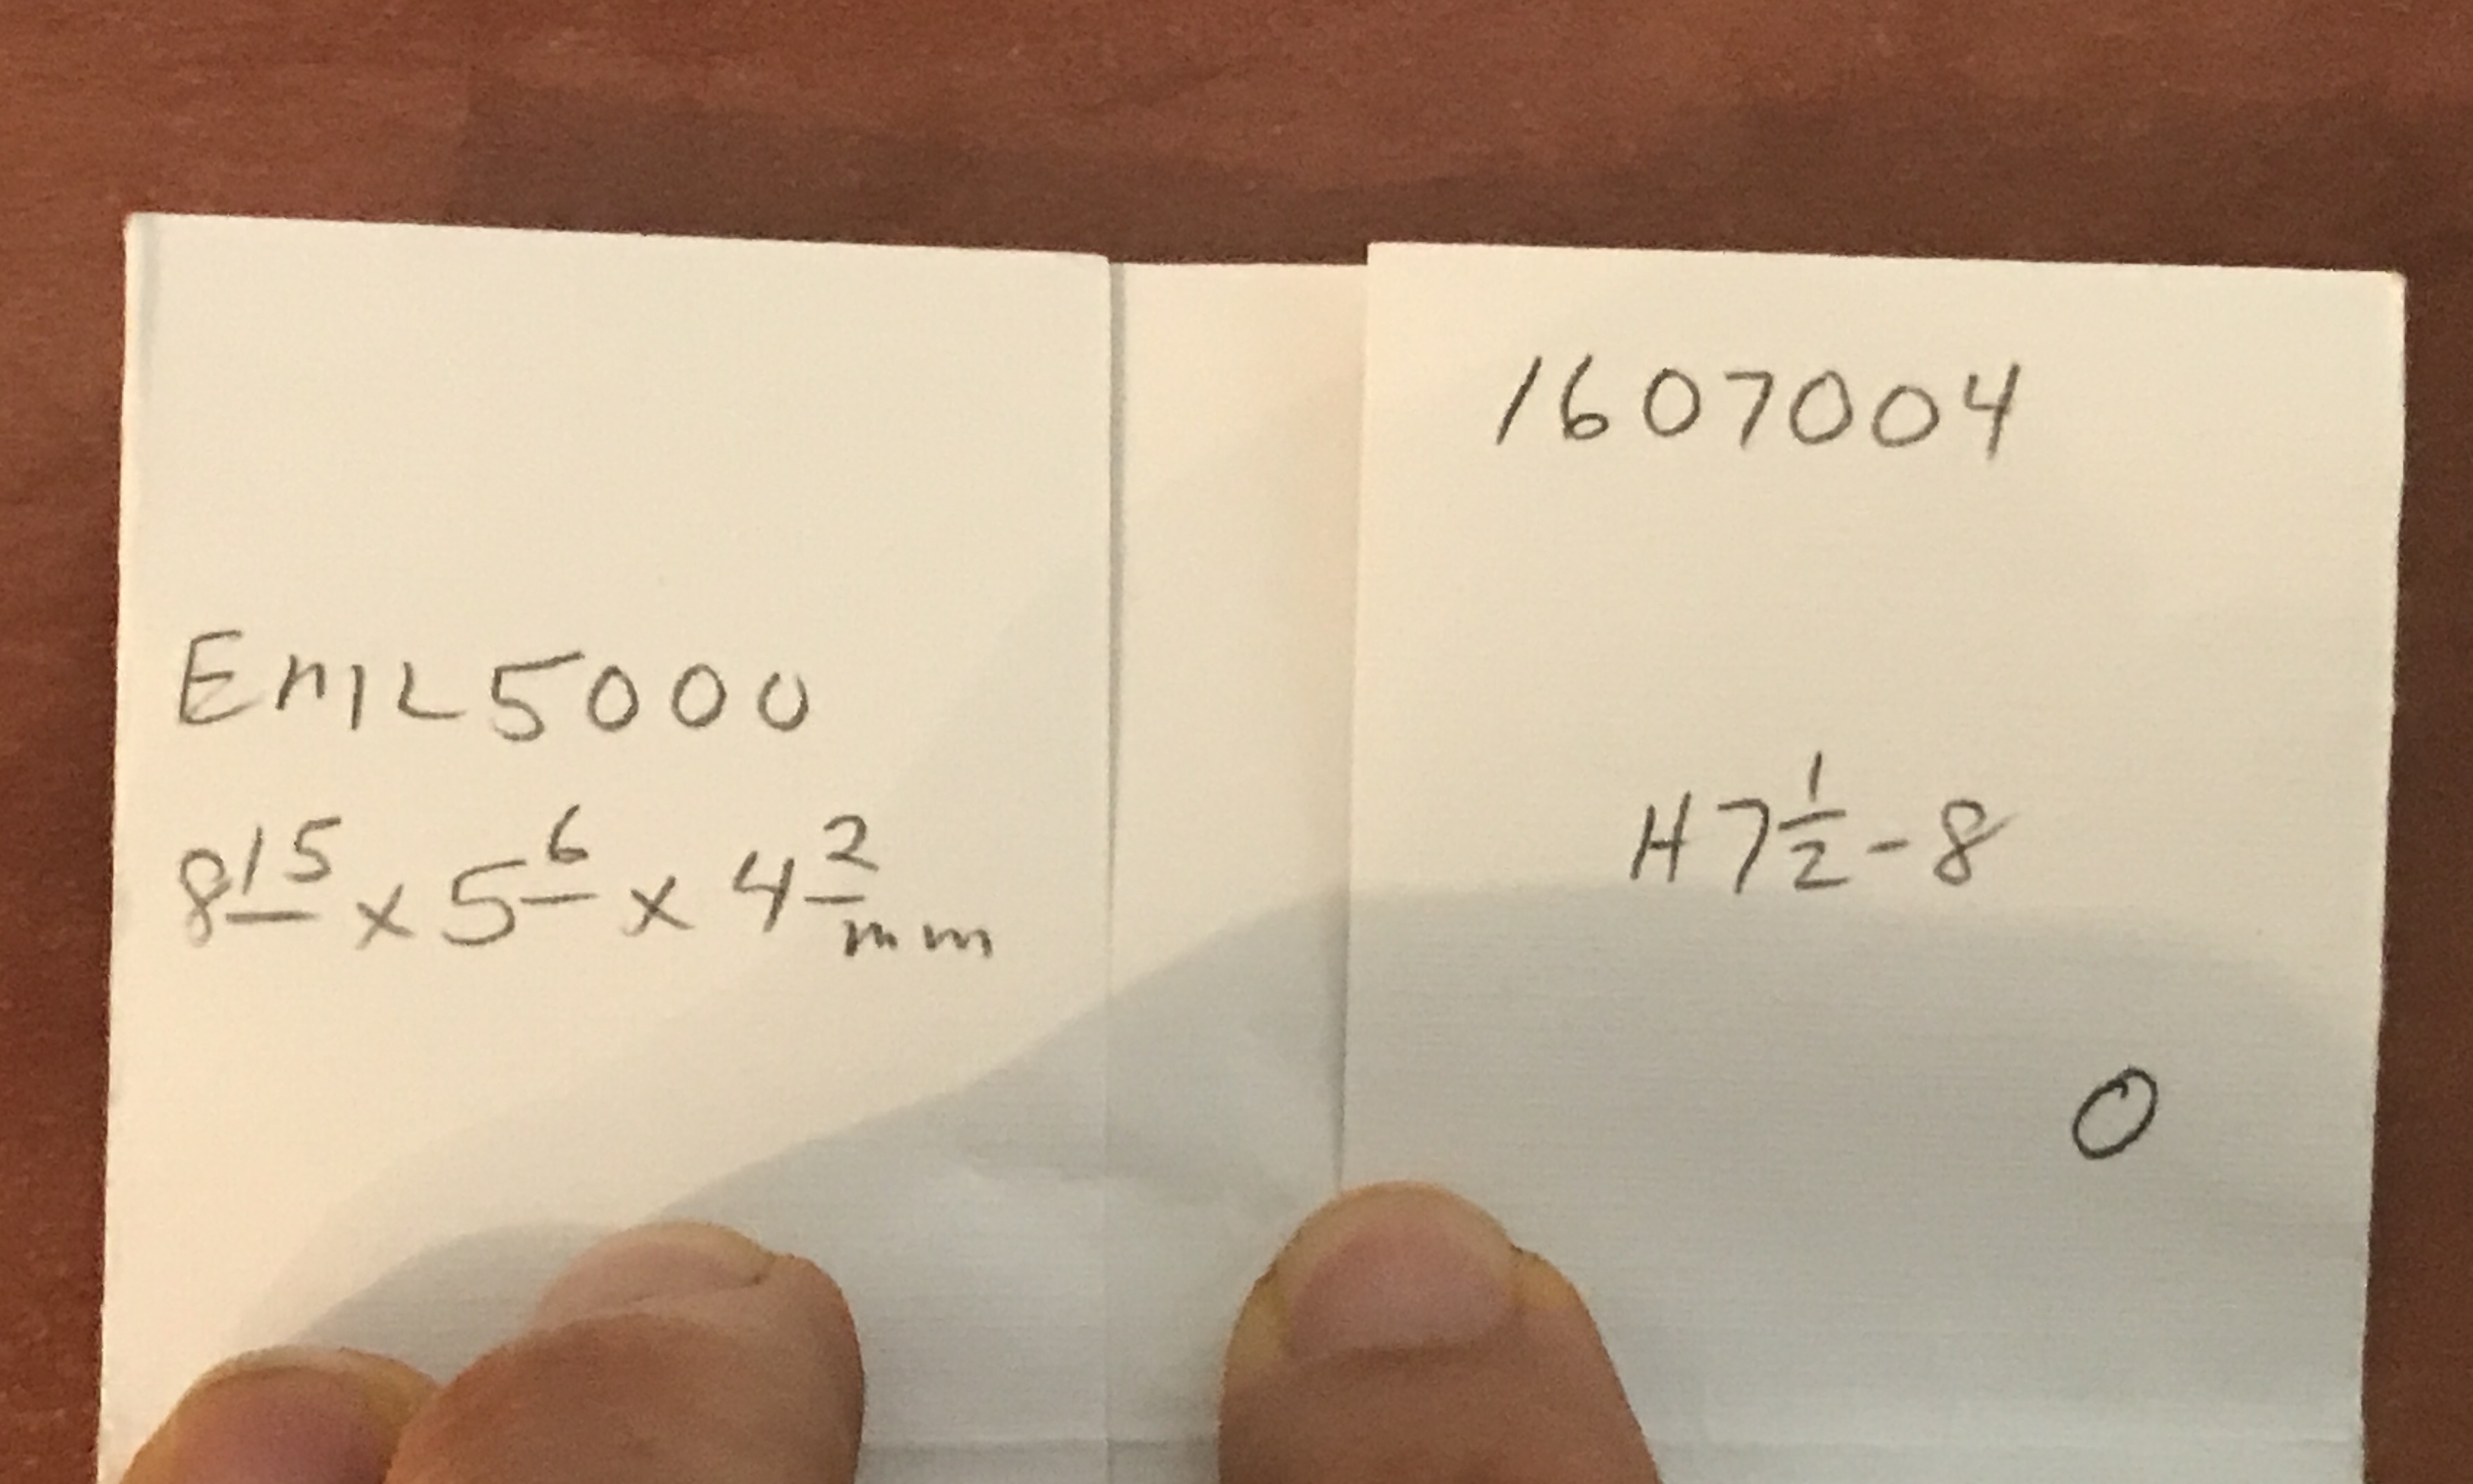 EML5000
8 15 x 5 6 x 4 2 mm
1607004
H 7 1/2 - 8
O